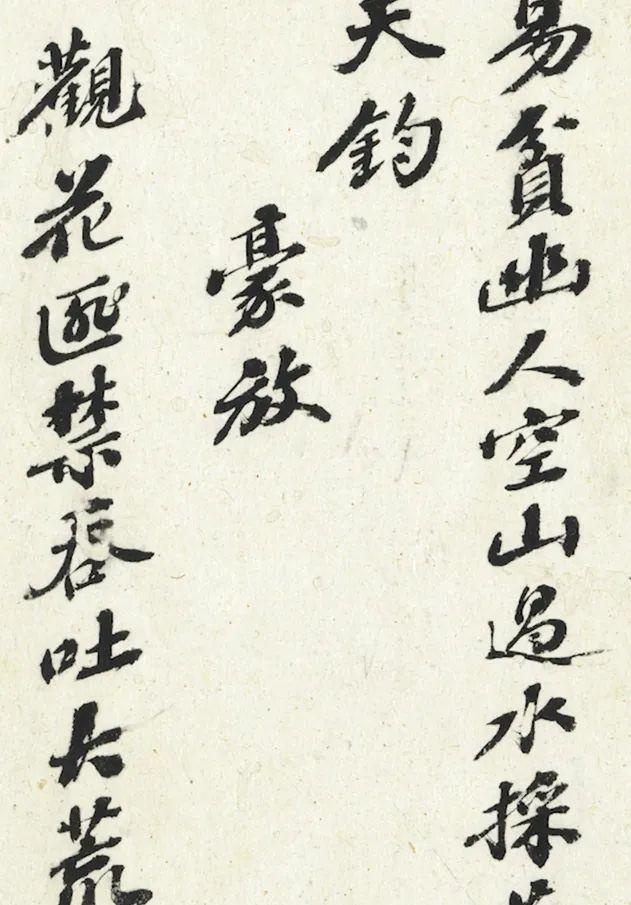 易貧幽人空山過水採
天鈞
豪放
觀花匪禁吞吐大荒